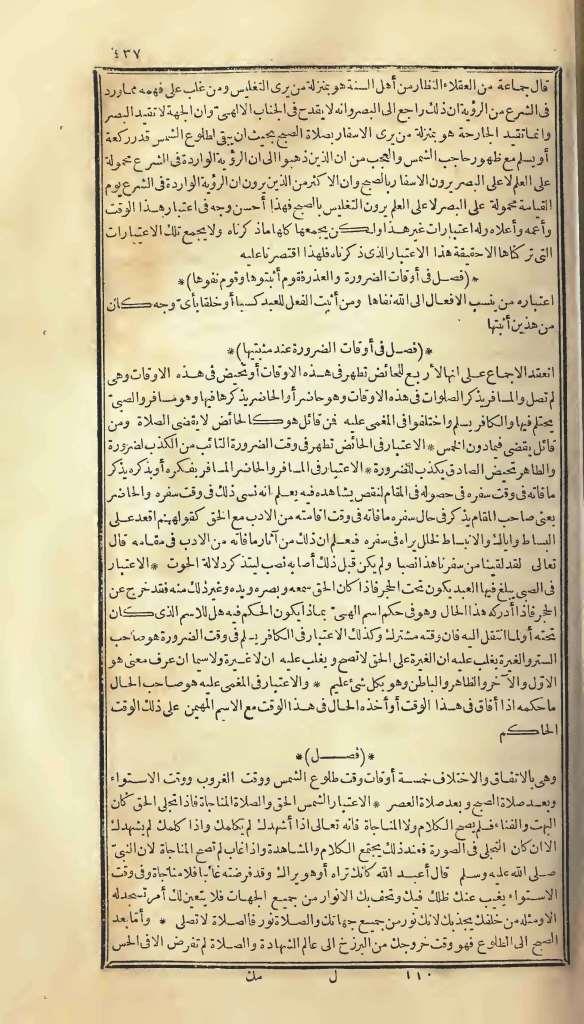 ٤٣٧
قال جماعة من العقلاء النظار من أهل السنة هو بمنزلة من يرى التغليس ومن غلب على فهمه مما ورد
فى الشرع من الرؤية ان ذلك راجع الى البصر وانه لا يقدح فى الجناب الالهى وان الجهة لا تقيد البصر
وانما تقيد الجارحة هو بمنزلة من يرى الاسفار بصلاة الصبح بحيث ان يبقى الطلوع الشمس قدر ركعة
أو يسلم مع ظهور حاجب الشمس والعجب من ان الذين ذهبوا الى ان الرؤية الواردة فى الشرع محمولة
على العلم لا على البصر يرون الاسفار بالصبح وان الاكثر من الذين يرون ان الرؤية الواردة فى الشرع يوم
القيامة محمولة على البصر لا على العلم يرون التغليس بالصبح فهذا أحسن وجه فى اعتبار هذا الوقت
وأعمه وأعلاه وله اعتبارات غير هذا ولكن يجمعها كلها ماذكرناه ولا يجمع تلك الاعتبارات
التى تركناها الا حقيقة هذا الاعتبار الذى ذكرناه فلهذا اقتصرنا عليه
*(فصل فى أوقات الضرورة والعذر فقوم أثبتوها وقوم نفوها)*
اعتباره من ينسب الافعال الى الله نفاها ومن أثبت الفعل للعبد كسبا أو خلقا بأى وجه كان
من هذين أثبتها
*(فصل فى أوقات الضرورة عند مثبتيها)*
انعقد الاجماع على انها لأربع للحائض تطهر فى هذه الاوقات أو تحيض فى هذه الاوقات وهى
لم تصل والمسافر يذكر الصلوات فى هذه الاوقات وهو حاضر أو الحاضر يذكرها فيها وهو مسافر والصبى
يحتلم فيها والكافر يسلم واختلفوا فى المغمى عليه فمن قائل هو كالحائض لا يقضى الصلاة ومن
قائل يقضى فيما دون الخمس * الاعتبار فى الحائض تطهر فى وقت الضرورة التائب من الكذب لضرورة
والطاهر تحيض الصادق يكذب للضرورة * الاعتبار فى المسافر والحاضر المسافر بفكره أو بذكره يذكر
مافاته فى وقت سفره فى حصوله فى المقام لنقص يشاهده فيه يعلم انه نسى ذلك فى وقت سفره والحاضر
يعنى صاحب المقام يذكر فى حال سفره مافاته فى وقت اقامته من الادب مع الحق كقولهم اقعد على
البساط واياك والانبساط لخلل يراه فى سفره فيعلم ان ذلك من آثار مافاته من الادب فى مقامه قال
تعالى لقد لقينا من سفرنا هذا نصبا ولم يكن قبل ذلك أصابه نصب ليتذكر دلالة الحوت * الاعتبار
فى الصبى يبلغ فيها العبد يكون تحت الحجر فاذا كان الحق سمعه وبصره ويده وغير ذلك منه فقد خرج عن
الحجر فاذا أدركه هذا الحال وهو فى حكم اسم الهىّ بماذا يكون الحكم فيه هل للاسم الذى كان
تحته أو لما انتقل اليه فان وقته مشترك وكذلك الاعتبار فى الكافر يسلم فى وقت الضرورة هو صاحب
الستر والغيرة يغلب عليه ان الغيرة على الحق لا تصح ويغلب عليه ان لا غيرة ولا سيما ان عرف معنى هو
الاول والآخر والظاهر والباطن وهو بكل شئ عليم * والاعتبار فى المغمى عليه هو صاحب الحال
ما حكمه اذا أفاق فى هذا الوقت أو أخذه الحال فى هذا الوقت مع الاسم المهيمن على ذلك الوقت
الحاكم
*(فصل)*
وهى بالاتفاق والاختلاف خمسة أوقات وقت طلوع الشمس ووقت الغروب ووقت الاستواء
وبعد صلاة الصبح وبعد صلاة العصر * الاعتبار الشمس الحق والصلاة المناجاة فاذا تجلى الحق كان
البهت والفناء فلم يصح الكلام ولا المناجاة فانه تعالى اذا أشهدك لم يكلمك واذا كلمك لم يشهدك
الا ان كان التجلى فى الصورة فعند ذلك يجتمع الكلام والمشاهدة واذا غاب لم تصح المناجاة لان النبىّ
صلى الله عليه وسلم قال أعبد الله كأنك تراه أو هو يراك وقد فرضته غائبا فلا مناجاة وفى وقت
الاستواء يغيب عنك ظلك فيك وتحف بك الانوار من جميع الجهات فلا يتعين لك أمر تسجد له
الا ومثله من خلفك يجذبك لانك نور من جميع جهاتك والصلاة نور فالصلاة لا تصلى * وأما بعد
الصبح الى الطلوع فهو وقت خروجك من البرزخ الى عالم الشهادة والصلاة لم تفرض الا فى الحس
١١٠ ل مك